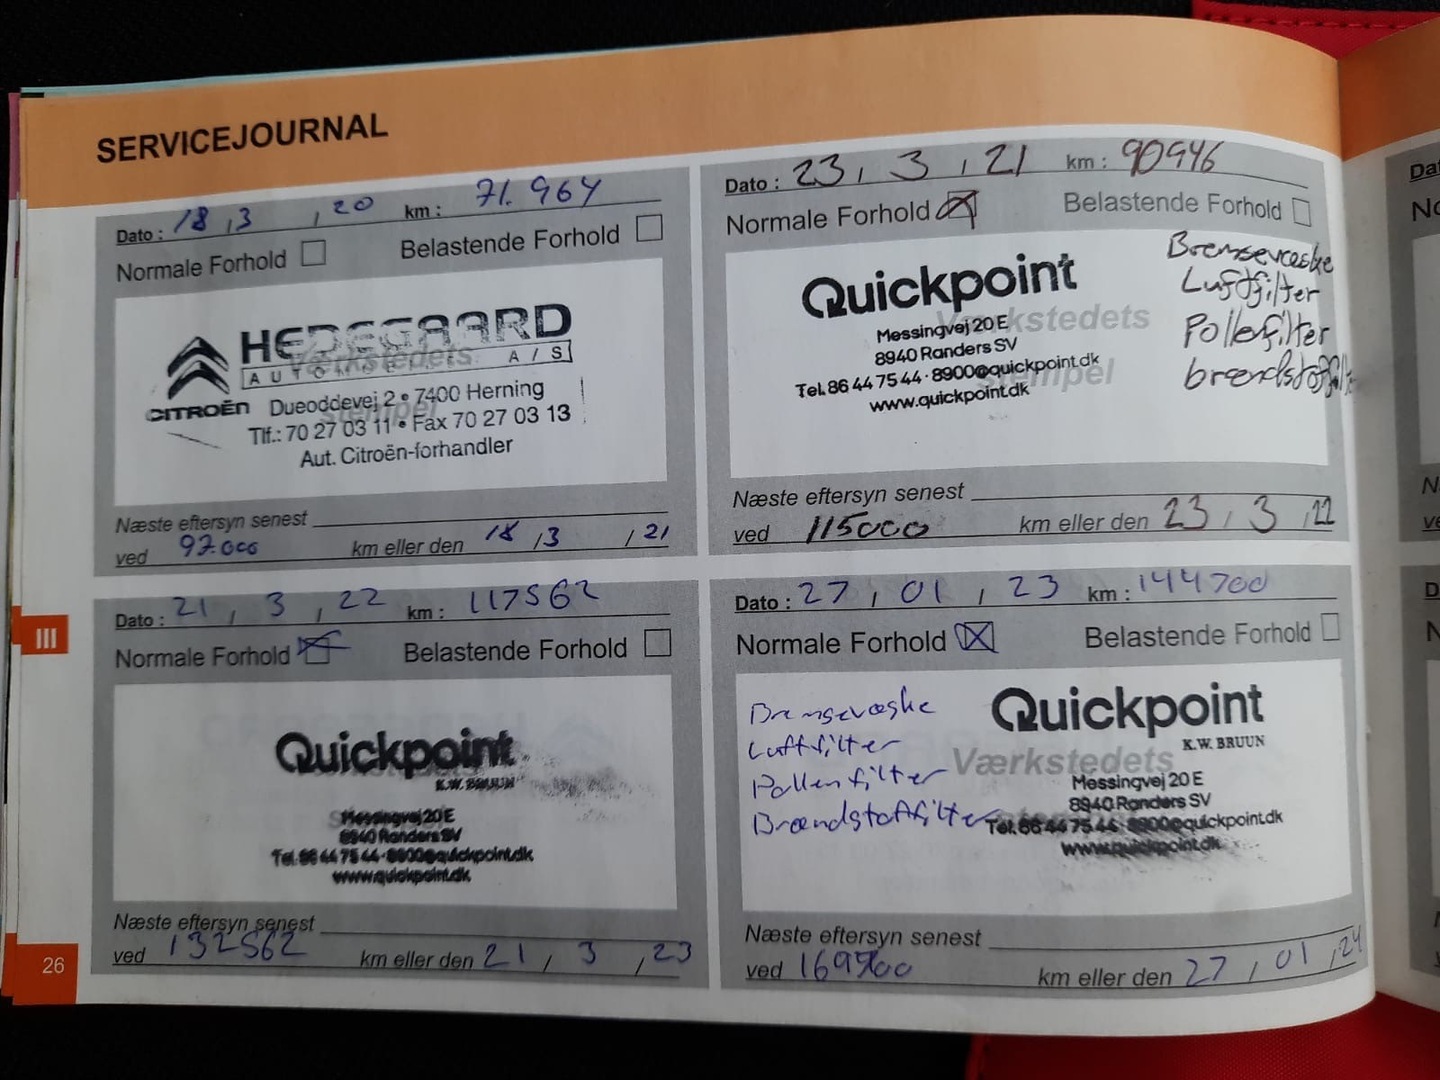 SERVICEJOURNAL
Dato : 18 , 3 , 20 km : 71.964
Normale Forhold Belastende Forhold
HEDEGAARD
A/S
CITROËN
Værkstedets
stempel
Dueoddevej 2 • 7400 Herning
Tlf.: 70 27 03 11 • Fax 70 27 03 13
Aut. Citroën-forhandler
Næste eftersyn senest
ved 97.000 km eller den 18 , 3 , 21
Dato : 23 , 3 , 21 km : 90946
Normale Forhold Belastende Forhold
Quickpoint
Værkstedets
stempel
Messingvej 20 E
8940 Randers SV
Tel. 86 44 75 44 · 8900@quickpoint.dk
www.quickpoint.dk
Bremsevæske
Luftfilter
Pollenfilter
Næste eftersyn senest
ved 115000 km eller den 23 , 3 , 22
Dato : 21 , 3 , 22 km : 117562
Normale Forhold Belastende Forhold
Quickpoint
K.W. BRUUN
Messingvej 20 E
8940 Randers SV
Tel. 86 44 75 44 · 8900@quickpoint.dk
www.quickpoint.dk
Næste eftersyn senest
ved 132562 km eller den 21 , 3 , 23
Dato : 27 , 01 , 23 km : 144700
Normale Forhold Belastende Forhold
Bremsevæske
Luftfilter
Pollenfilter
Brændstoffilter
Quickpoint
K.W. BRUUN
Værkstedets
Messingvej 20 E
8940 Randers SV
Tel. 86 44 75 44 · 8900@quickpoint.dk
www.quickpoint.dk
Næste eftersyn senest
ved 169700 km eller den 27 , 01 , 24
III
26